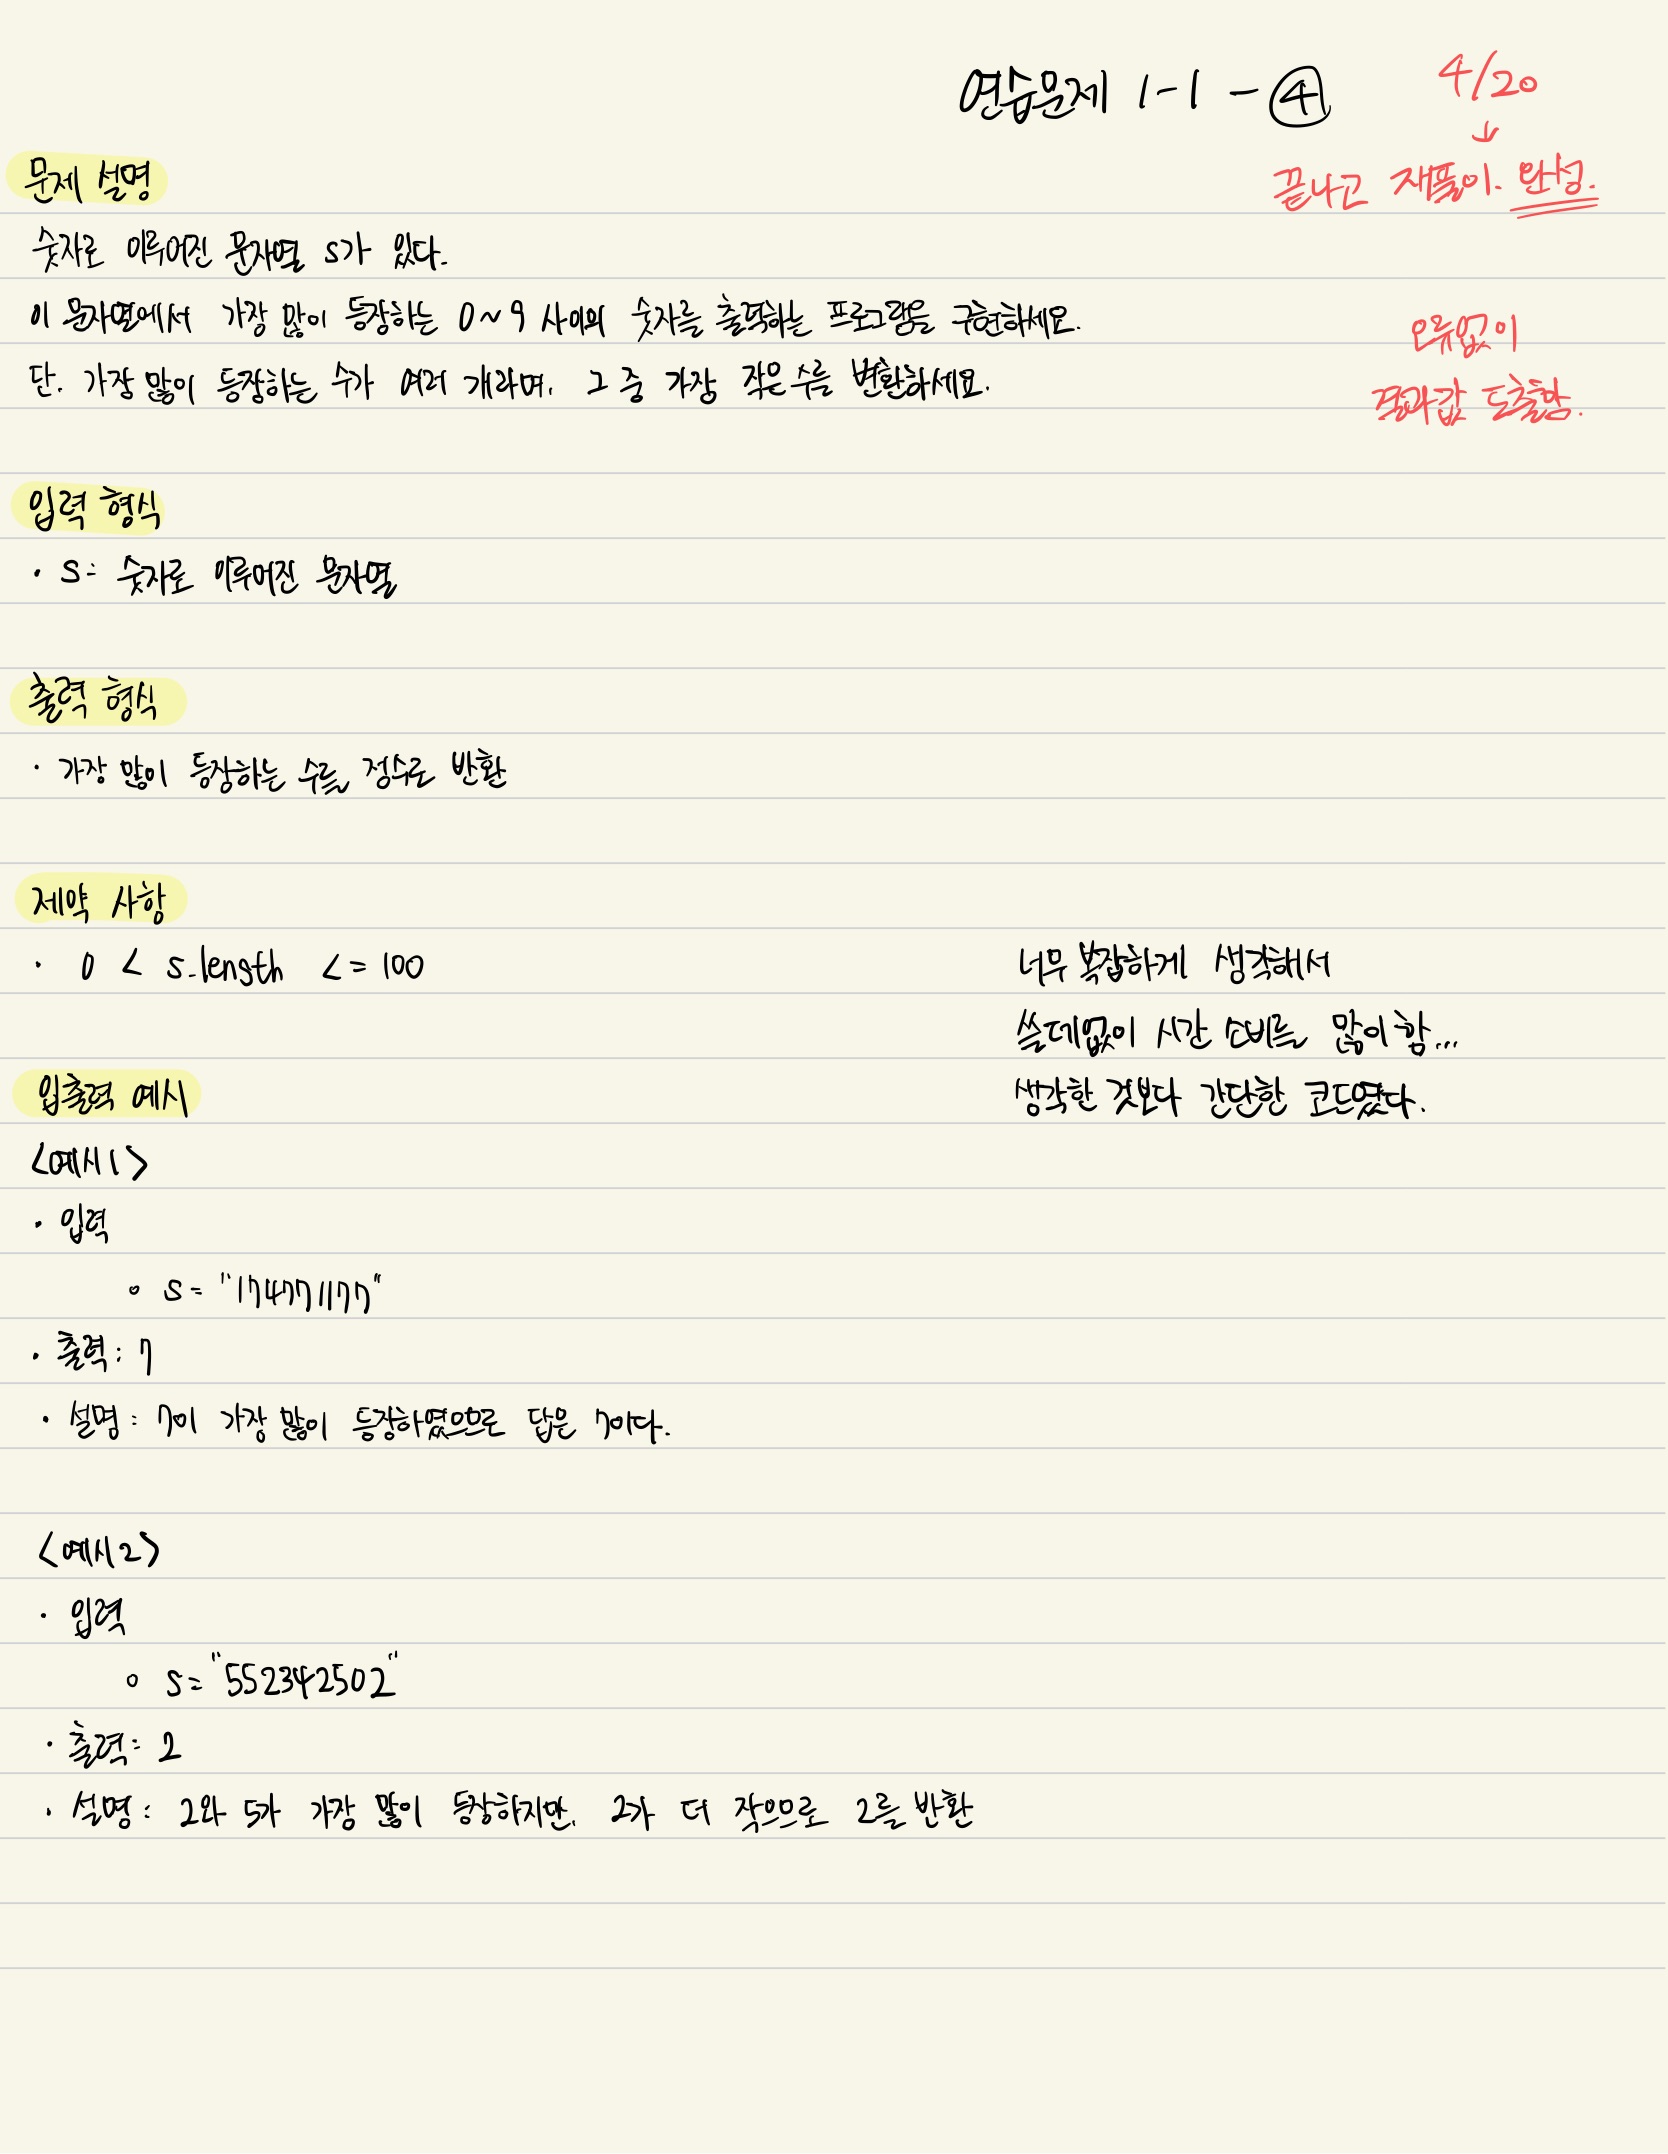 연습문제 1-1 - ④
4/20
↓
끝나고 재풀이. 완성.
문제 설명
숫자로 이루어진 문자열 s가 있다.
이 문자열에서 가장 많이 등장하는 0~9 사이의 숫자를 출력하는 프로그램을 구현하세요.
단. 가장 많이 등장하는 수가 여러 개라며, 그 중 가장 작은 수를 변환하세요.
오류없이
결과값 도출함.
입력 형식
· s: 숫자로 이루어진 문자열
출력 형식
· 가장 많이 등장하는 수를 정수로 반환
제약 사항
· 0 < s.length <= 100
너무 복잡하게 생각해서
쓸데없이 시간 소비를 많이 함...
생각한 것보다 간단한 코드였다.
입출력 예시
<예시1>
· 입력
○ s = "174771177"
· 출력: 7
· 설명: 7이 가장 많이 등장하였으므로 답은 7이다.
<예시2>
· 입력
○ s = "552342502"
· 출력: 2
· 설명: 2와 5가 가장 많이 등장하지만, 2가 더 작으므로 2를 반환